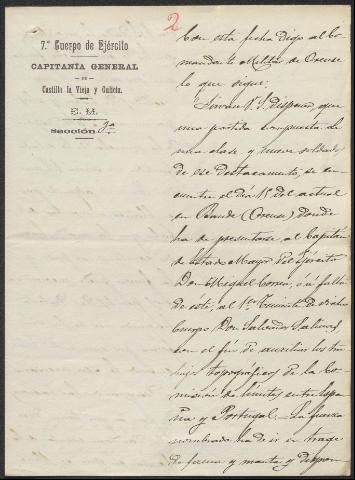 2
7.º Cuerpo de Ejército
CAPITANÍA GENERAL
DE
Castilla la Vieja y Galicia.
E. M.
Sección 3ª
Con esta fecha digo al Co-
mandante Militar de Orense
lo que sigue:
"Sírvase V.S. disponer, que
una partida compuesta de
una clase y nueve soldados
de ese destacamento, se en-
cuentre el día 15 del actual
en Bande (Orense) donde
ha de presentarse al Capitán
de Estado Mayor del Ejército
Don Miguel Correa, ó á falta
de este, al 1er Teniente de dicho
Cuerpo Don Salvador Salinas,
con el fin de auxiliar los tra-
bajos topográficos de la Co-
misión de límites entre Espa-
ña y Portugal.- La fuerza
nombrada ha de ir en traje
de faena y manta y dispon-